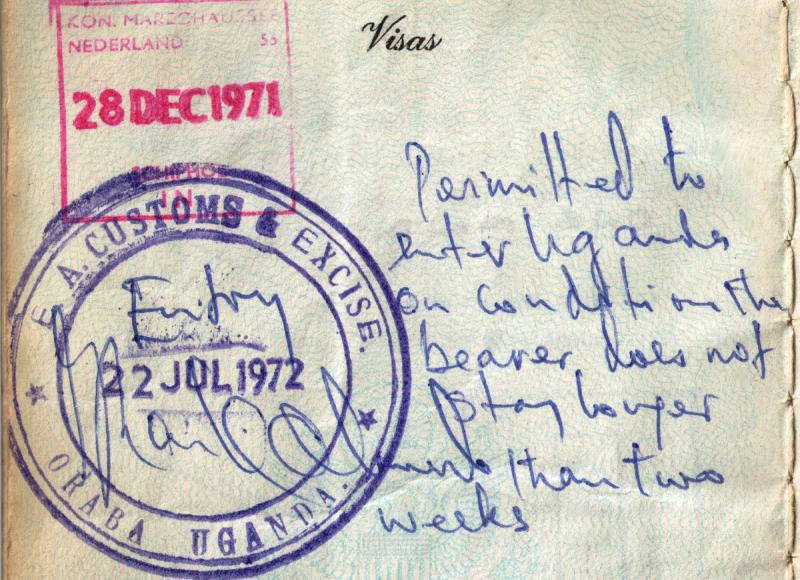 KON. MARECHAUSSEE
NEDERLAND
28 DEC 1971
SCHIPHOL
IN
Visas
E.A. CUSTOMS & EXCISE.
Entry
22 JUL 1972
ORABA UGANDA.
Permitted to
enter Uganda
on condition the
bearer does not
stay longer
than two
weeks